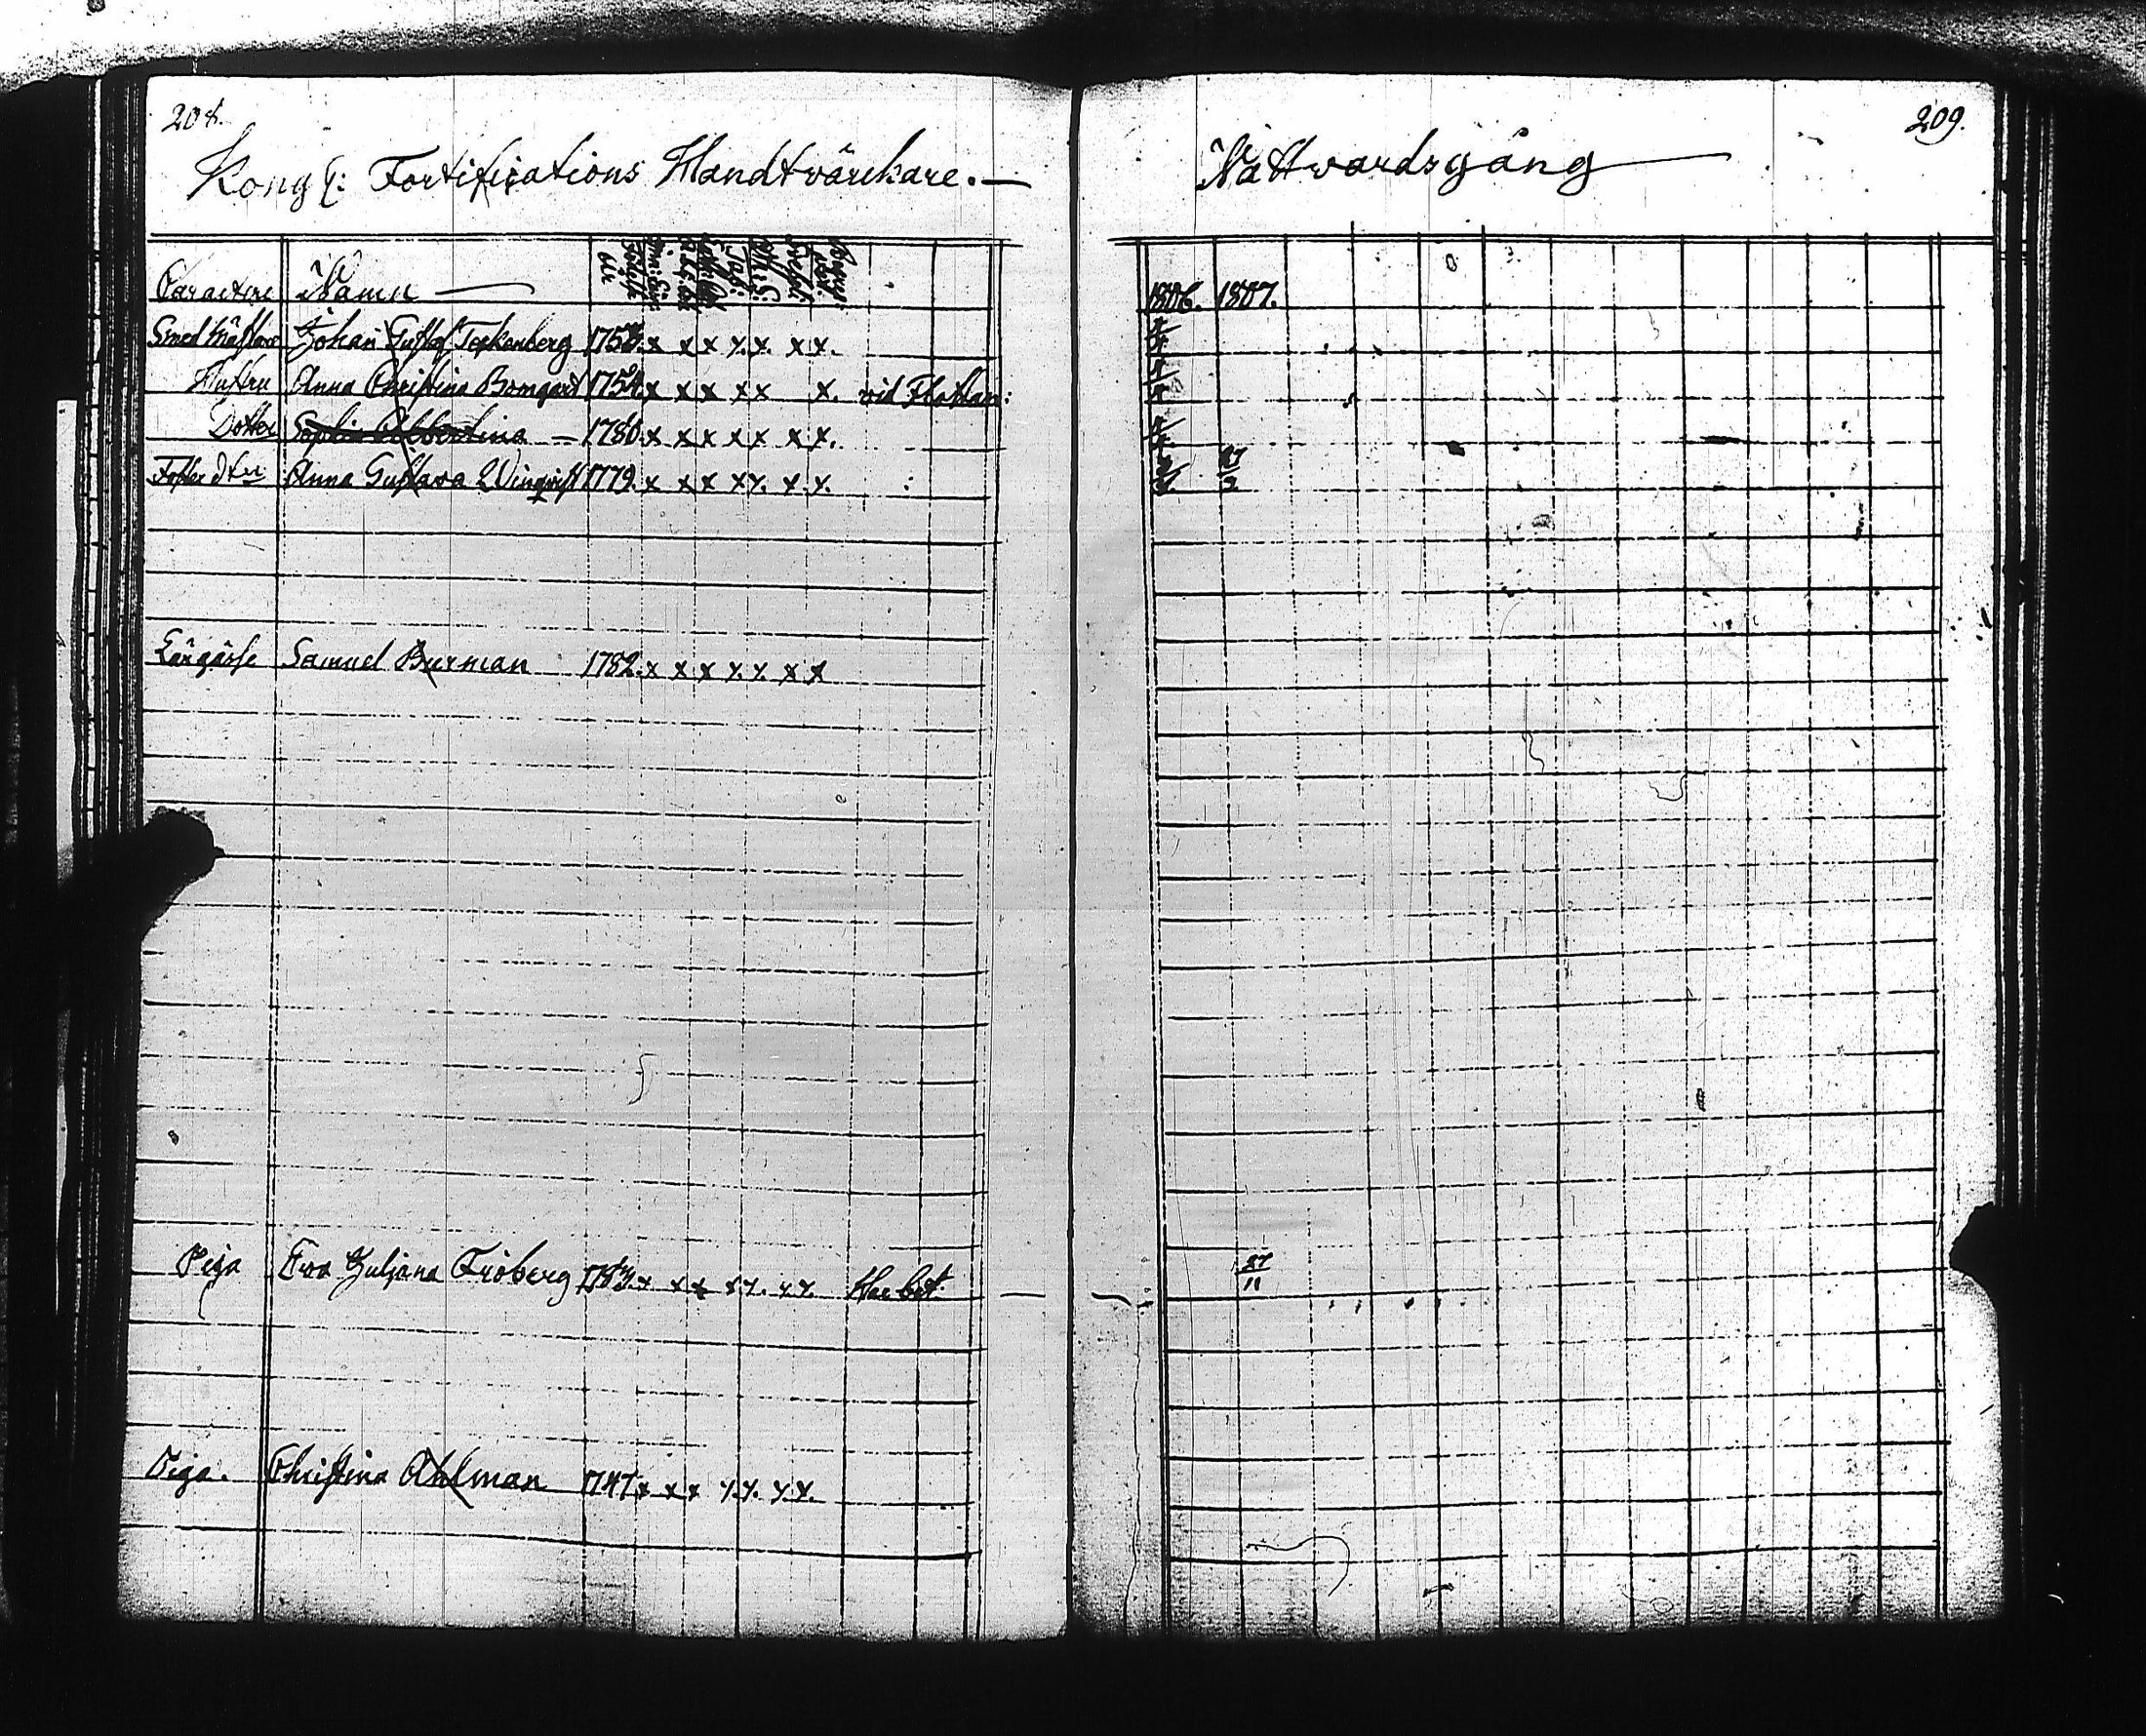 208.
Kongl: Fortifications Handtvärckare.
Caractere Namn
Smed Mästare Johan Gustaf Teckenberg 1758. x x x x. x. x x.
Hustru Anna Christina Bomgart 1754. x x x x x x. vid Flottan:
Dotter Sophia Albertina — 1780. x x x x x x x.
Foster dtr Anna Gustava Winqvist 1779. x x x x x. x. x.
Lärgåsse Samuel Burman 1782. x x x x. x. x x
Piga Eva Juljana Fröberg 1783. x x x x x. x x. Har bet.
Piga. Christina Ahlman 1747 x x x x. x. x. x.
209.
Nattvardsgång
1806. 1807.
27
11